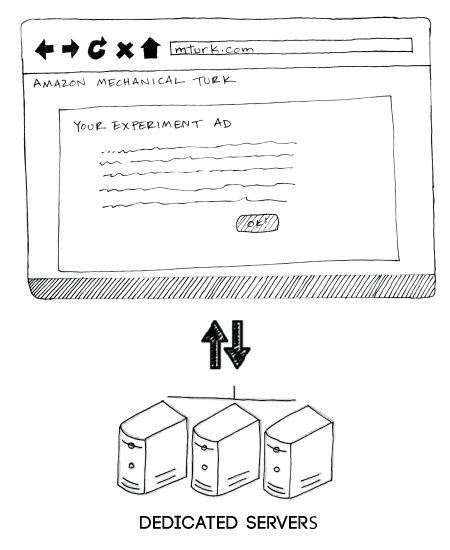 mturk.com
AMAZON MECHANICAL TURK
YOUR EXPERIMENT AD
OK!
DEDICATED SERVERS